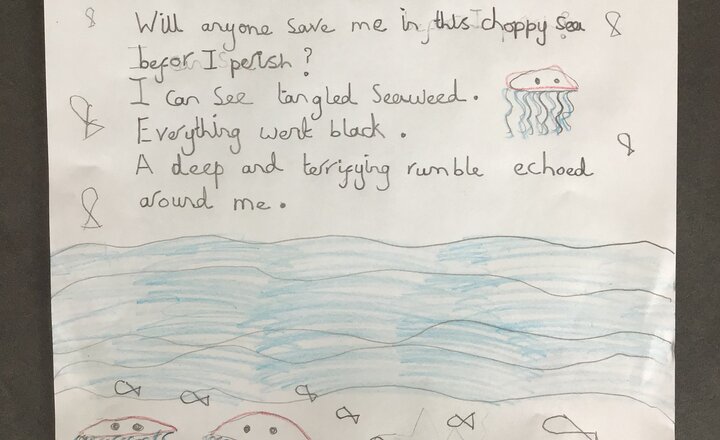 Will anyone save me in this choppy sea
befor I perish?
I can see tangled seaweed.
Everything went black.
A deep and terrifying rumble echoed
around me.